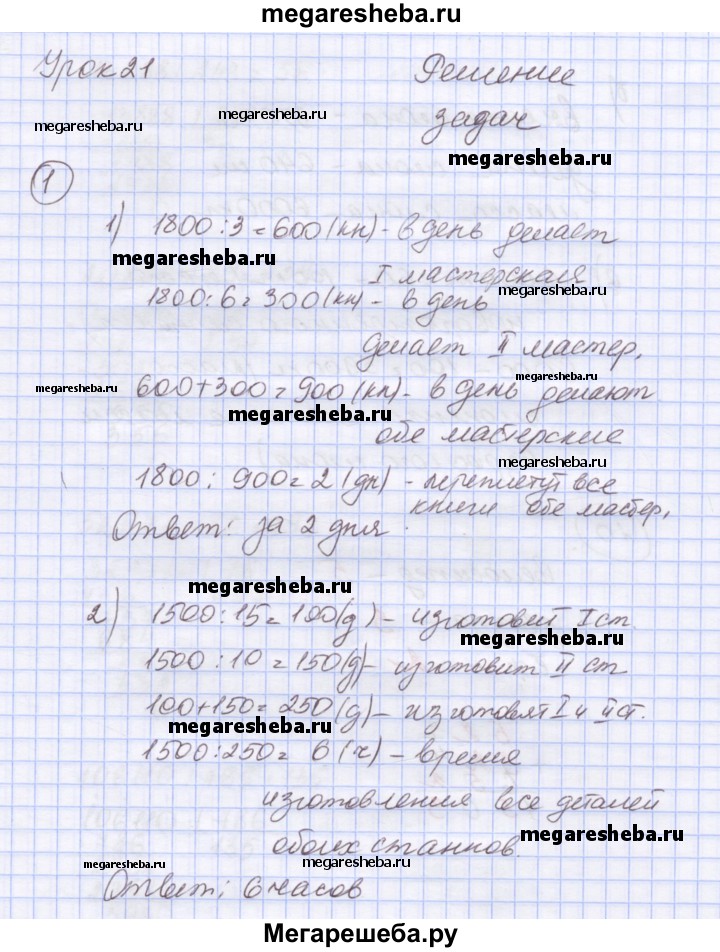 megaresheba.ru
Урок 21 Решение
megaresheba.ru megaresheba.ru
задач
megaresheba.ru
1
1) 1800:3=600(кн)- в день делает
megaresheba.ru
I мастерская
megaresheba.ru
1800:6=300(кн)- в день
делает II мастер.
megaresheba.ru megaresheba.ru
600+300=900(кн)- в день делают
megaresheba.ru
обе мастерские
megaresheba.ru
1800:900=2(дн)-переплетут все
книги обе мастер.
Ответ: за 2 дня.
megaresheba.ru
2) 1500:15=100(д)-изготовит I ст.
megaresheba.ru
1500:10=150(д)-изготовит II ст
100+150=250(д)-изготовят I и II ст.
megaresheba.ru
1500:250=6(ч)-время
изготовления все деталей
megaresheba.ru
обоих станков.
megaresheba.ru megaresheba.ru
Ответ: 6 часов
Мегарешеба.ру